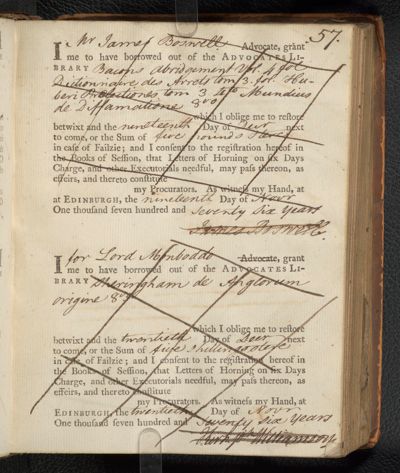 57.
I Mr James Boswell Advocate, grant
me to have borrowed out of the ADVOCATES LI-
BRARY Bacons abridgement Vol. 4 fol
Dictionnaire des Arrets tom 3. fol. Hu-
beri Prelectiones tom 3 4to Mundius
de Diffamatione 8vo
which I oblige me to restore
betwixt and the nineteenth Day of Decr next
to come, or the Sum of five pounds Sterl
in case of Failzie; and I consent to the registration hereof in
the Books of Session, that Letters of Horning on six Days
Charge, and other Executorials needful, may pass thereon, as
effeirs, and thereto constitute
my Procurators. As witness my Hand, at
at EDINBURGH, the nineteenth Day of Novr
One thousand seven hundred and seventy Six years
James Boswell.
I for Lord Monboddo Advocate, grant
me to have borrowed out of the ADVOCATES LI-
BRARY Sheringham de Anglorum
origine 8vo
which I oblige me to restore
betwixt and the twentieth Day of Decr next
to come, or the Sum of five shillings
in case of Failzie; and I consent to the registration hereof in
the Books of Session, that Letters of Horning on six Days
Charge, and other Executorials needful, may pass thereon, as
effeirs, and thereto constitute
my Procurators. As witness my Hand, at
EDINBURGH, the twentieth Day of Novr
One thousand seven hundred and Seventy Six years
Williamson